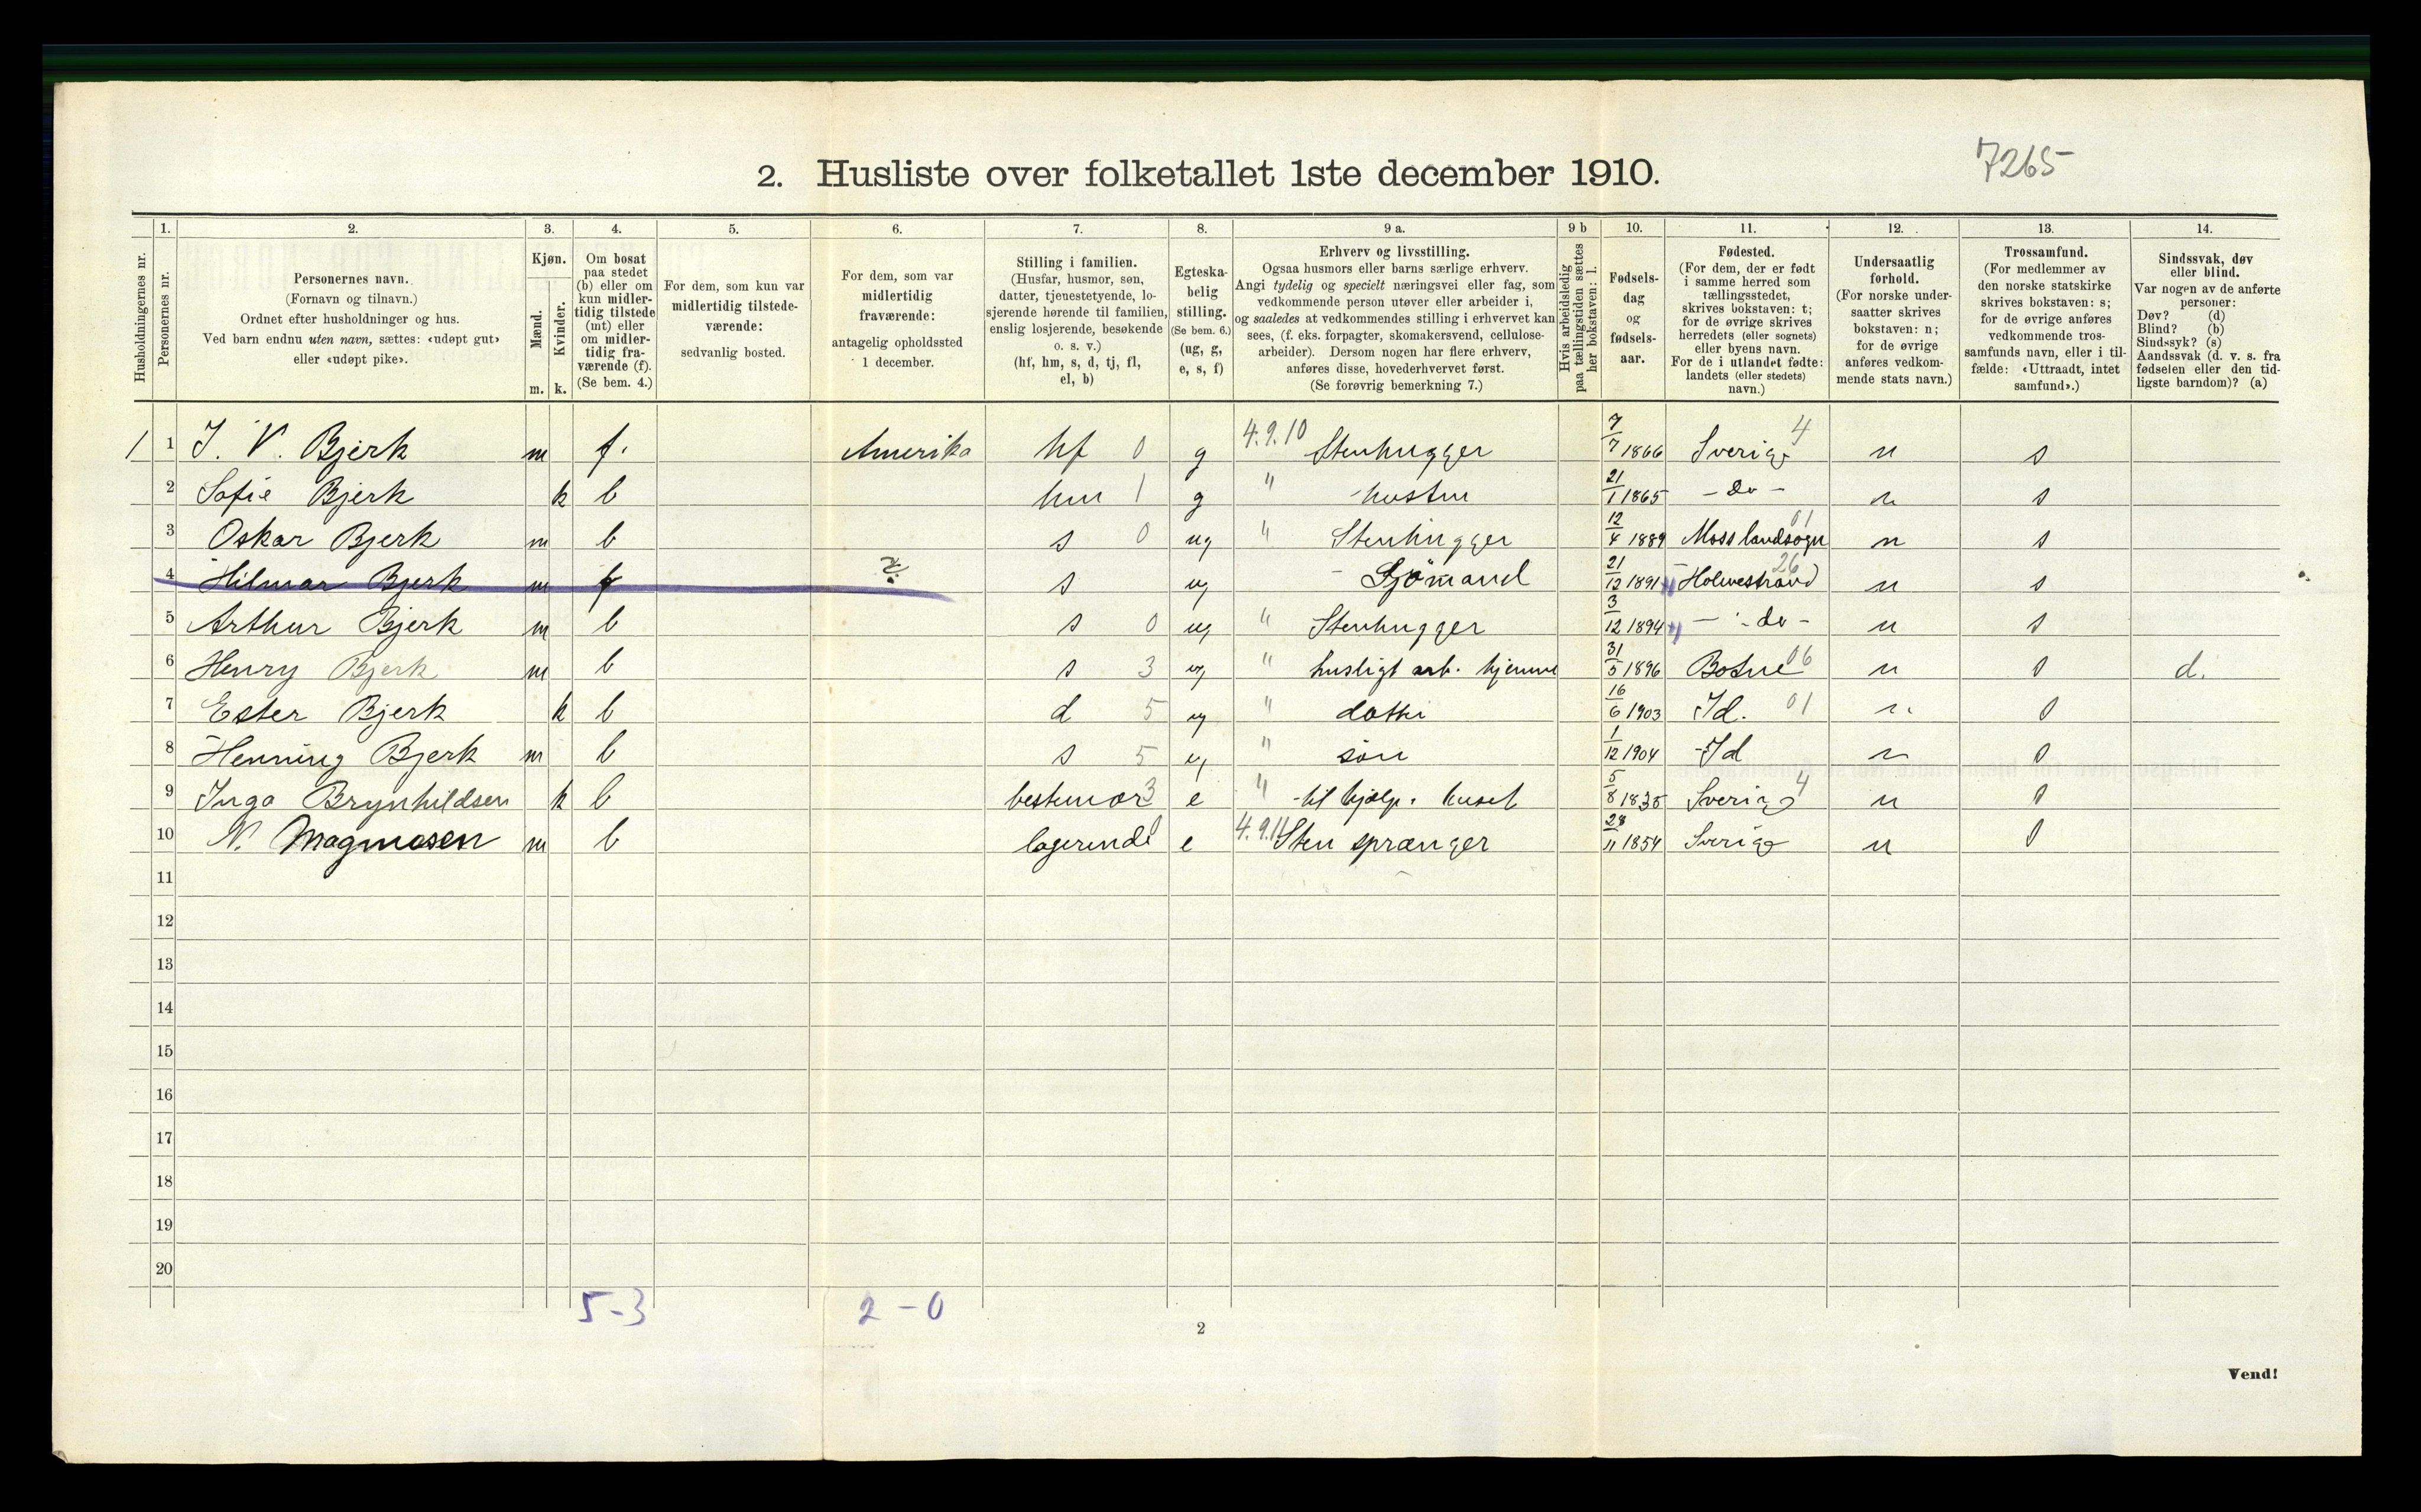 7265
2. Husliste over folketallet 1ste december 1910.
Husholdningernes nr.
1.
Personernes nr.
2.
Personernes navn.
(Fornavn og tilnavn.)
Ordnet efter husholdninger og hus.
Ved barn endnu uten navn, sættes: «udøpt gut»
eller «udøpt pike».
3.
Kjøn.
Mænd.
Kvinder.
m. k.
4.
Om bosat
paa stedet
(b) eller om
kun midler-
tidig tilstede
(mt) eller
om midler-
tidig fra-
værende (f).
(Se bem. 4.)
5.
For dem, som kun var
midlertidig tilstede-
værende:
sedvanlig bosted.
6.
For dem, som var
midlertidig
fraværende:
antagelig opholdssted
1 december.
7.
Stilling i familien.
(Husfar, husmor, søn,
datter, tjenestetyende, lo-
sjerende hørende til familien,
enslig losjerende, besøkende
o. s. v.)
(hf, hm, s, d, tj, fl,
el, b)
8.
Egteska-
belig
stilling.
(Se bem. 6.)
(ug, g,
e, s, f)
9 a.
Erhverv og livsstilling.
Ogsaa husmors eller barns særlige erhverv.
Angi tydelig og specielt næringsvei eller fag, som
vedkommende person utøver eller arbeider i,
og saaledes at vedkommendes stilling i erhvervet kan
sees, (f. eks. forpagter, skomakersvend, cellulose-
arbeider). Dersom nogen har flere erhverv,
anføres disse, hovederhvervet først.
(Se forøvrig bemerkning 7.)
9 b
Hvis arbeidsledig
paa tællingstiden sættes
her bokstaven: l.
10.
Fødsels-
dag
og
fødsels-
aar.
11.
Fødested.
(For dem, der er født
i samme herred som
tællingsstedet,
skrives bokstaven: t;
for de øvrige skrives
herredets (eller sognets)
eller byens navn.
For de i utlandet fødte:
landets (eller stedets)
navn.)
12.
Undersaatlig
forhold.
(For norske under-
saatter skrives
bokstaven: n;
for de øvrige
anføres vedkom-
mende stats navn.)
13.
Trossamfund.
(For medlemmer av
den norske statskirke
skrives bokstaven: s;
for de øvrige anføres
vedkommende tros-
samfunds navn, eller i til-
fælde: «Uttraadt, intet
samfund».)
14.
Sindssvak, døv
eller blind.
Var nogen av de anførte
personer:
Døv? (d)
Blind? (b)
Sindssyk? (s)
Aandssvak (d. v. s. fra
fødselen eller den tid-
ligste barndom)? (a)
1 1 J. V. Bjerk m f. Amerika hf 0 g 4.9.10 Stenhugger 7/7 1866 Sverige 4 n s
2 Sofie Bjerk k b hm 1 g " hustru 21/1 1865 - do - n s
3 Oskar Bjerk m b s 0 ug " Stenhugger 12/4 1889 Moss landsogn 01 n s
4 Hilmar Bjerk m f ? s ug - Sjömand 21/12 1891 Holmestrand 26 n s
5 Arthur Bjerk m b s 0 ug " Stenhugger 3/12 1894 - do - n s
6 Henry Bjerk m b s 3 ug " husligt arb. hjemme 31/5 1896 Botne 06 n s d.
7 Ester Bjerk k b d 5 ug " datter 16/6 1903 Id. 01 n s
8 Henning Bjerk m b s 5 ug " søn 1/12 1904 Id n s
9 Inga Brynhildsen k b bestemor 3 e " til hjælp. huset 5/8 1835 Sverige 4 n s
10 N. Magnusen m b logerende e 4.9.11 Sten sprænger 28/11 1854 Sverige n s
11
12
13
14
15
16
17
18
19
20
5-3 2-0
2
Vend!